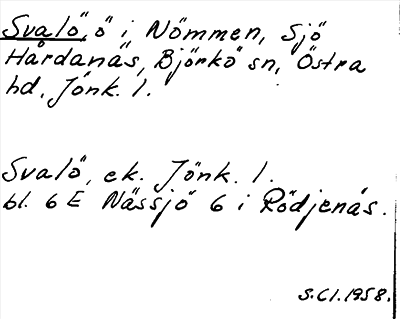 Svalö, ö i Nömmen, Sjö
Hårdanäs, Björkö sn, Östra
hd, Jönk. l.
Svalö, ek. Jönk. l.
bl. 6 E Nässjö 6 i Rödjenäs.
S.Cl.1958.